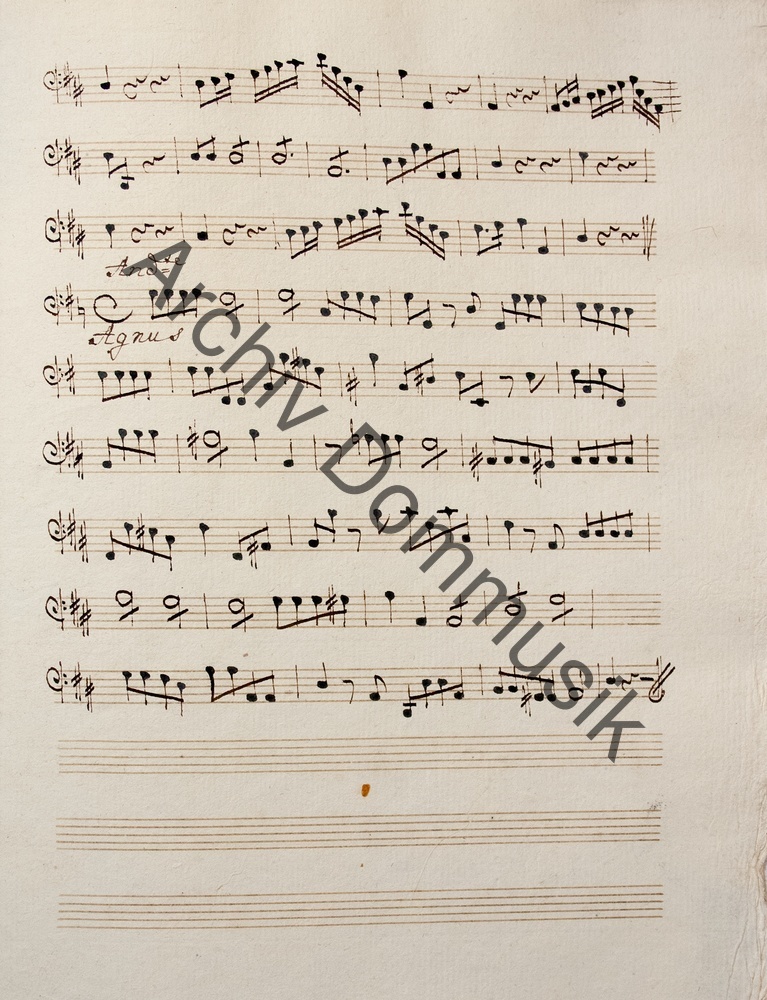 And.te
Agnus
Archiv Dommusik